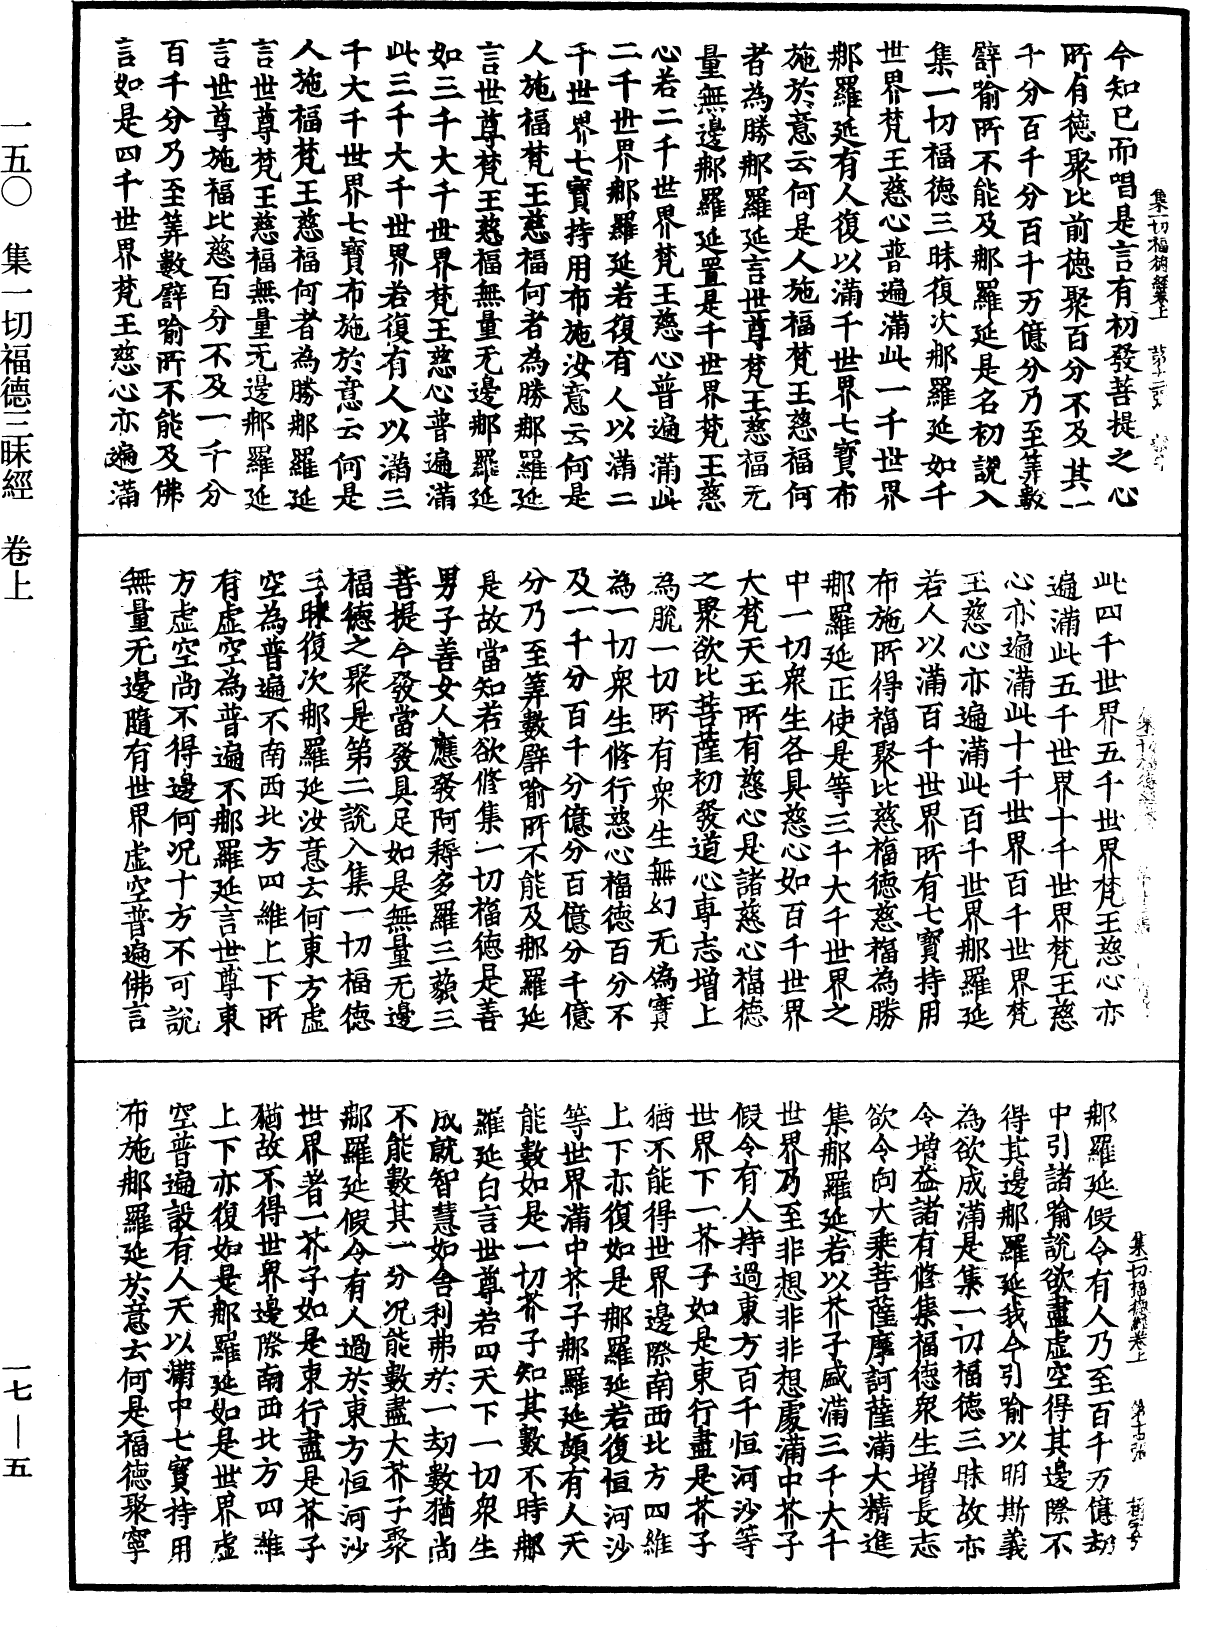 今知已而唱是言有初發菩提之心
所有德聚比前德聚百分不及其一
千分百千分百千万億分乃至筭數
譬喻所不能及那羅延是名初說入
集一切福德三昧復次那羅延如千
世界梵王慈心普遍滿此一千世界
那羅延有人復以滿千世界七寶布
施於意云何是人施福梵王慈福何
者為勝那羅延言世尊梵王慈福无
量無邊那羅延置是千世界梵王慈
心若二千世界梵王慈心普遍滿此
二千世界那羅延若復有人以滿二
千世界七寶持用布施汝意云何是
人施福梵王慈福何者為勝那羅延
言世尊梵王慈福無量无邊那羅延
如三千大千世界梵王慈心普遍滿
此三千大千世界若復有人以滿三
千大千世界七寶布施於意云何是
人施福梵王慈福何者為勝那羅延
言世尊梵王慈福無量无邊那羅延
言世尊施福比慈百分不及一千分
百千分乃至筭數譬喻所不能及佛
言如是四千世界梵王慈心亦遍滿
此四千世界五千世界梵王慈心亦
遍滿此五千世界十千世界梵王慈
心亦遍滿此十千世界百千世界梵
王慈心亦遍滿此百千世界那羅延
若人以滿百千世界所有七寶持用
布施所得福聚比慈福德慈福為勝
那羅延正使是等三千大千世界之
中一切衆生各具慈心如百千世界
大梵天王所有慈心是諸慈心福德
之聚欲比菩薩初發道心專志增上
為脫一切所有衆生無幻无偽寶
為一切衆生修行慈心福德百分不
及一千分百千分億分百億分千億
分乃至筭數譬喻所不能及那羅延
是故當知若欲修集一切福德是善
男子善女人應發阿耨多羅三藐三
菩提今發當發具足如是無量无邊
福德之聚是第二說入集一切福德
三昧復次那羅延汝意云何東方虛
空為普遍不南西北方四維上下所
有虛空為普遍不那羅延言世尊東
方虛空尚不得邊何況十方不可說
無量无邊隨有世界虛空普遍佛言
那羅延假令有人乃至百千万億劫
中引諸喻說欲盡虛空得其邊際不
得其邊那羅延我今引喻以明斯義
為欲成滿是集一切福德三昧故亦
令增益諸有修集福德衆生增長志
欲令向大乘菩薩摩訶薩滿大精進
集那羅延若以芥子盛滿三千大千
世界乃至非想非非想處滿中芥子
假令有人持過東方百千恒河沙等
世界下一芥子如是東行盡是芥子
猶不能得世界邊際南西北方四維
上下亦復如是那羅延若復恒河沙
等世界滿中芥子那羅延頗有人天
能數如是一切芥子知其數不時那
羅延白言世尊若四天下一切衆生
成就智慧如舍利弗於一劫數猶尚
不能數其一分況能數盡大芥子聚
那羅延假令有人過於東方恒河沙
世界著一芥子如是東行盡是芥子
猶故不得世界邊際南西北方四維
上下亦復如是那羅延如是世界虛
空普遍設有人天以滿中七寶持用
布施那羅延於意云何是福德聚寧
一五〇 集一切福德三昧經 卷上
一七—五